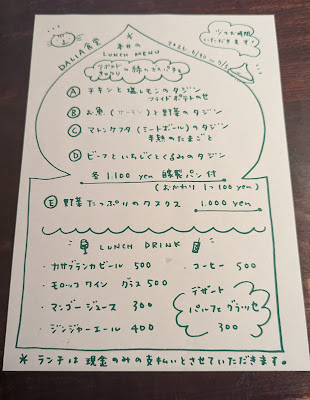 DALIA食堂
本日の
LUNCH MENU
少々お時間
いただきます!
Ⓐ チキンと塩レモンのタジン
フライドポテトのせ
Ⓑ お魚(サーモン)と野菜のタジン
Ⓒ マトンケフタ(ミートボール)のタジン
半熟のたまごと
Ⓓ ビーフといちじくとくるみのタジン
各 1.100 yen 自家製パン付
(おかわり 1つ100 yen)
Ⓔ 野菜たっぷりのクスクス 1.000 yen
LUNCH DRINK
・カサブランカビール 500
・コーヒー 500
・モロッコワイン グラス 500
・マンゴージュース 300
・ジンジャーエール 400
デザート
パルフェグラッセ
300
※ ランチは現金のみの支払いとさせていただきます。